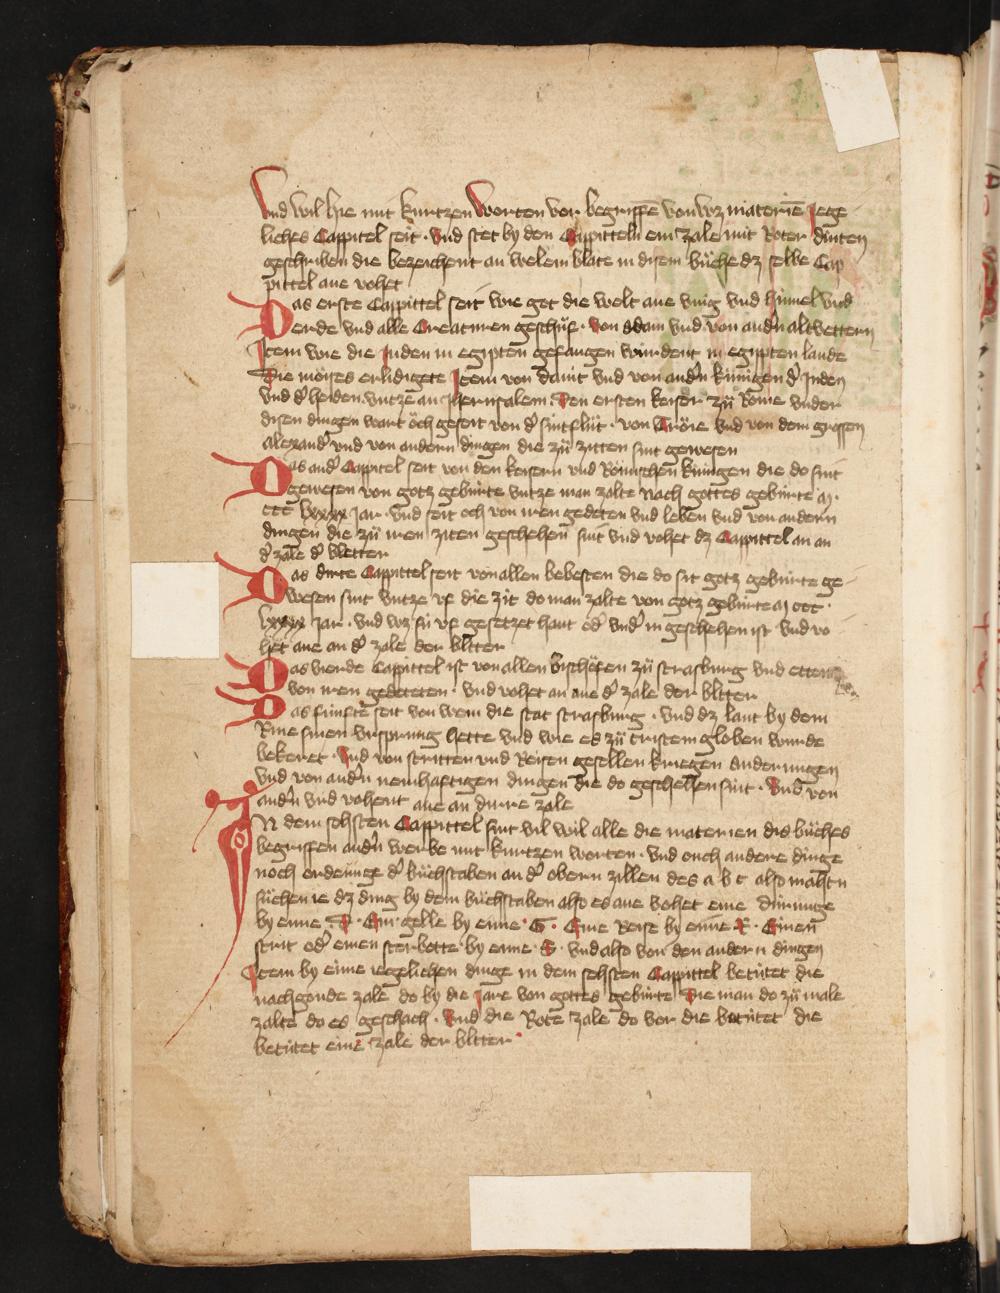 Vnd wil hie mit kurtzen worten vor begriffē von wz materiē iege
liches Cappitel seit · Vnd stet by den Cappitteln ein zale mit Roter dinten
geschriben die bezeichent an welem blate in disem büche dz selbe Cap
pittel ane vohet
Das erste Cappittel seit wie got die welt ane ving vnd himel vnd
erde vnd alle Creaturen geschüf · Von adam vnd von andn̄ altvettern
Item wie die Juden in egipten gefangen wurdent in egipten lande
Die moises erlidigete Item von dauit vnd von andn̄ kunigen d' Juden
vnd d' heiden vntze an Jherusalem · Den ersten keiser zü Rome vnder
disen dingen wart öch geseit von d' sintflüt · von Tröie vnd von dem grossen
alexand' vnd von andern dingen die zü zitten sint gewesen
Das and' Cappitel seit von den keisern vnd Römschen kunigen die do sint
gewesen von gotz gebürte vntze man zalte nach gottes gebürte M ·
ccc lxxxx jar · Vnd seit och von iren gedeten vnd leben vnd von andern
dingen die zü iren ziten geschehen sint vnd vohet dz Cappittel an an
d' zale d' bletter
Das dirte Cappittel seit von allen bebesten die do sit gotz gebürte ge
wesen sint vntze vf die zit do man zalte von gotz gebürte M ccc ·
lxxxx jar · vnd wz sü vf gesetzet hant od' vnd' in geschehen ist · vnd vo
het ane an d' zale der bltter
Das vierde Cappittel ist von allen Bischöfen zü strasburg vnd etten
von iren gedeteten · vnd vohet an ane d' zale der bltter
Das fünfte seit von wem die stat strasburg · vnd dz lant by dem
Rine sinen vrsprung hette vnd wie es zü cristem globen wurde
bekeret · Vnd von stritten vnd Reisen gesellen kriegen anderungen
vnd von andn̄ nemhaftigen dingen die do geschehen sint · Vnd von
andn̄ vnd vohent ane an dirre zale
In dem sehsten Cappittel sint vil wil alle die materien dis büches
begriffen andn̄ werbe mit kurtzen worten · vnd ouch andere dinge
noch ordenūge d' büchstaben an d' obern zillen des a b c also mā
süchen ie dz ding by dem büchstaben also es ane vohet eine
by eime · Ein gelle by eime · G · Eine Reise by eime R · Einen
strit od' einen sterbotte by eime · S · vnd also von den andern dingen
Item by eime iegelichen dinge in dem sehsten Cappittel betütet die
nachgonde zale do by die jare von gottes gebürte Die man do zü male
zalte do es geschach · Vnd die Rote zale do vor die betütet die
betütet eine zale der bltter ·